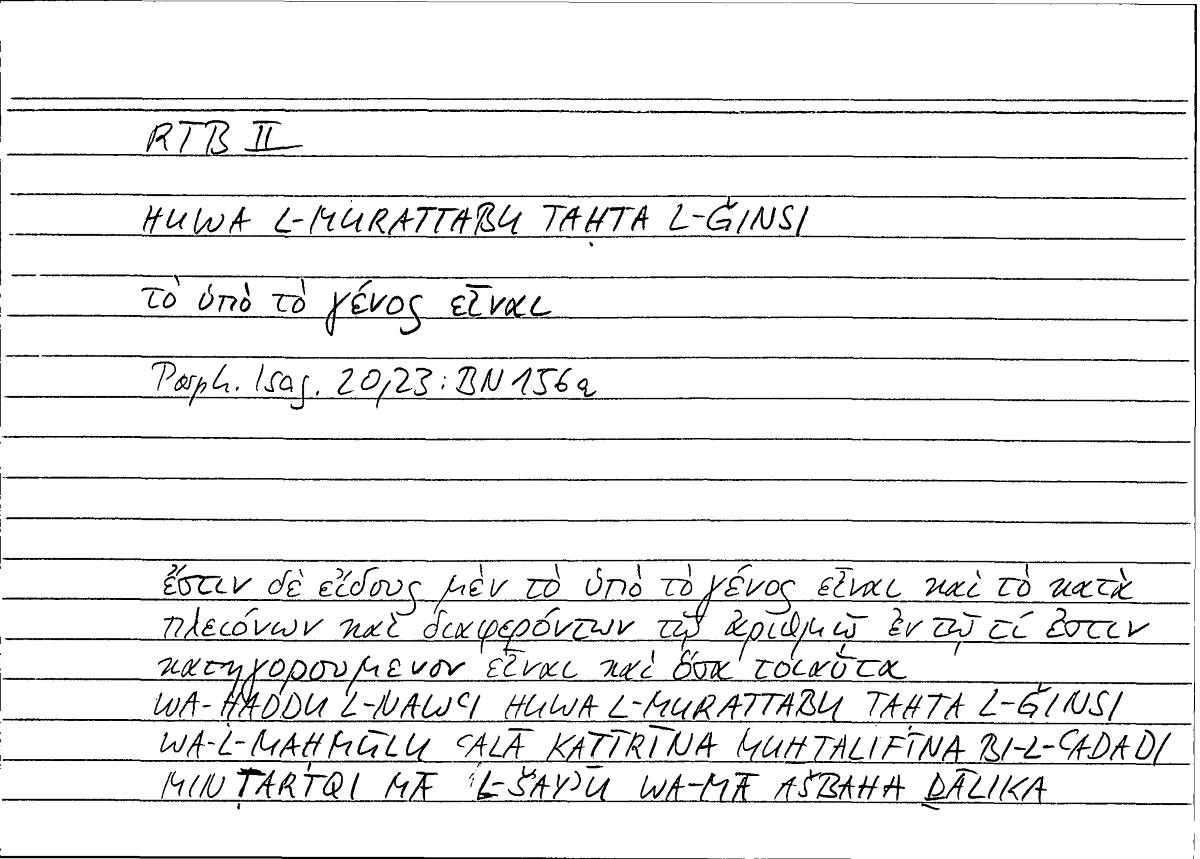 RTB II
HUWA L-MURATTABU TAḤTA L-ǦINSI
τὸ ὑπὸ τὸ γένος εἶναι
Porph. Isag. 20,23: BN 156a
ἔστιν δὲ εἴδους μὲν τὸ ὑπὸ τὸ γένος εἶναι καὶ τὸ κατὰ
πλειόνων καὶ διαφερόντων τῷ ἀριθμῷ ἐν τῷ τί ἐστιν
κατηγορουμενον εἶναι καὶ ὅσα τοιαῦτα
WA-ḤADDU L-NAWʿI HUWA L-MURATTABU TAHTA L-ǦINSI
WA-L-MAHMŪLU ʿALĀ KATĪRĪNA MUHTALIFĪNA BI-L-ʿADADI
MIN ṬARĪQI MĀ L-ŠAYʾU WA-MĀ AŠBAHA ḎĀLIKA